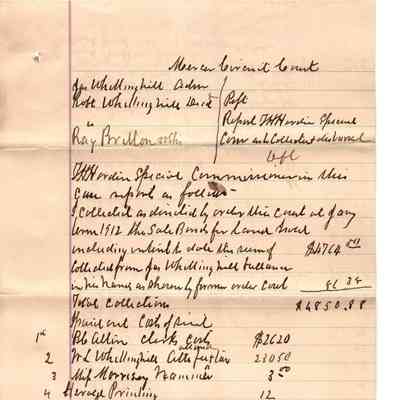 Mercer Circuit Court
Jas Whellinghill Adm
Robt Whellinghill Decd Ptff
Report TH Hardin Special
vs
Com cash Collected & disbursed
Ray Britton &c
Deft
TH Hardin Special Commissioner in this
Case report as follows
Collected as directed by order this Court at
term 1912 the Sale Bonds for Land sued
including interest to date the sum of $4764
Collected from Jas Whellinghill ballance
in his hands as shown by former order Court 86 38
Total Collections $4850.88
Paid out Costs of suit
1st Allin Clerks Costs $2620
2 Whellinghill Atty 23050
3 Morrison Examiner 3 00
4 Herald Printing 12